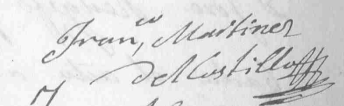 Fran.co Martinez
del Castillo